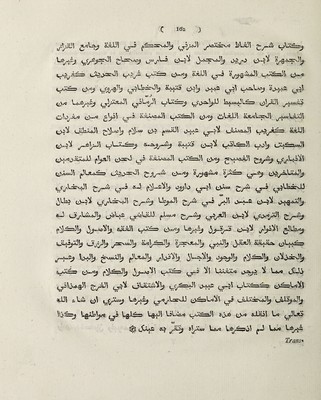 ( 162 )
وكتاب شرح الفاظ مختصر المزني والمحكم في اللغة وجامع القزاز
والجمهرة لابن دريد والمجمل لابن فارس وصحاح الجوهري وغيرها
من الكتب المشهورة في اللغة ومن كتب غريب الحديث كغريب
ابي عبيدة وصاحبه ابي عبيد وابن قتيبة والخطابي والهروي ومن كتب
تفسير القران كالبسيط للواحدي وكتاب الرماني المعتزلي وغيرهما من
التفاسير الجامعة للغات ومن الكتب المصنفة في انواع من مفردات
اللغة كغريب المصنف لابي عبيد القسم بن سلام واصلاح المنطق لابن
السكيت وادب الكاتب لابن قتيبة وشروحه وكتاب الزاهر لابن
الانباري وشروح الفصيح ومن الكتب المصنفة في لحن العوام للمتقدمين
والمتاخرين وهي كثيرة مشهورة ومن شروح الحديث كمعالم السنن
للخطابي في شرح سنن ابي داود والاعلام له في شرح البخاري
والتمهيد لابن عبد البر في شرح الموطا وشرح البخاري لابن بطال
وشرح الترمذي لابن العربي وشرح مسلم للقاضي عياض والمشارق له
ومطالع الانوار لابن قرقول وغيرها ومن كتب الفقه والاصول والكلام
كبيان حقيقة العقل والنبي والمعجزة والكرامة والسحر والرزق والتوفيق
والخذلان والكلام والوجود والاجال والاقدار والعالم والنسخ والبدا وغير
ذلك مما لا يوجد متقنا الا في كتب الاصول والكلام ومن كتب
الاماكن ككتاب ابي عبيد البكري والاشتقاق لابي الفرج الهمداني
والموتلف والمختلف في الاماكن للحازمي وغيرها وستري ان شاء الله
تعالي ما انقله من هذه الكتب مضافا اليها كلها في مواطنها وكذا
غيرها مما لم اذكرها مما ستراه وتقر به عينك
Trans-